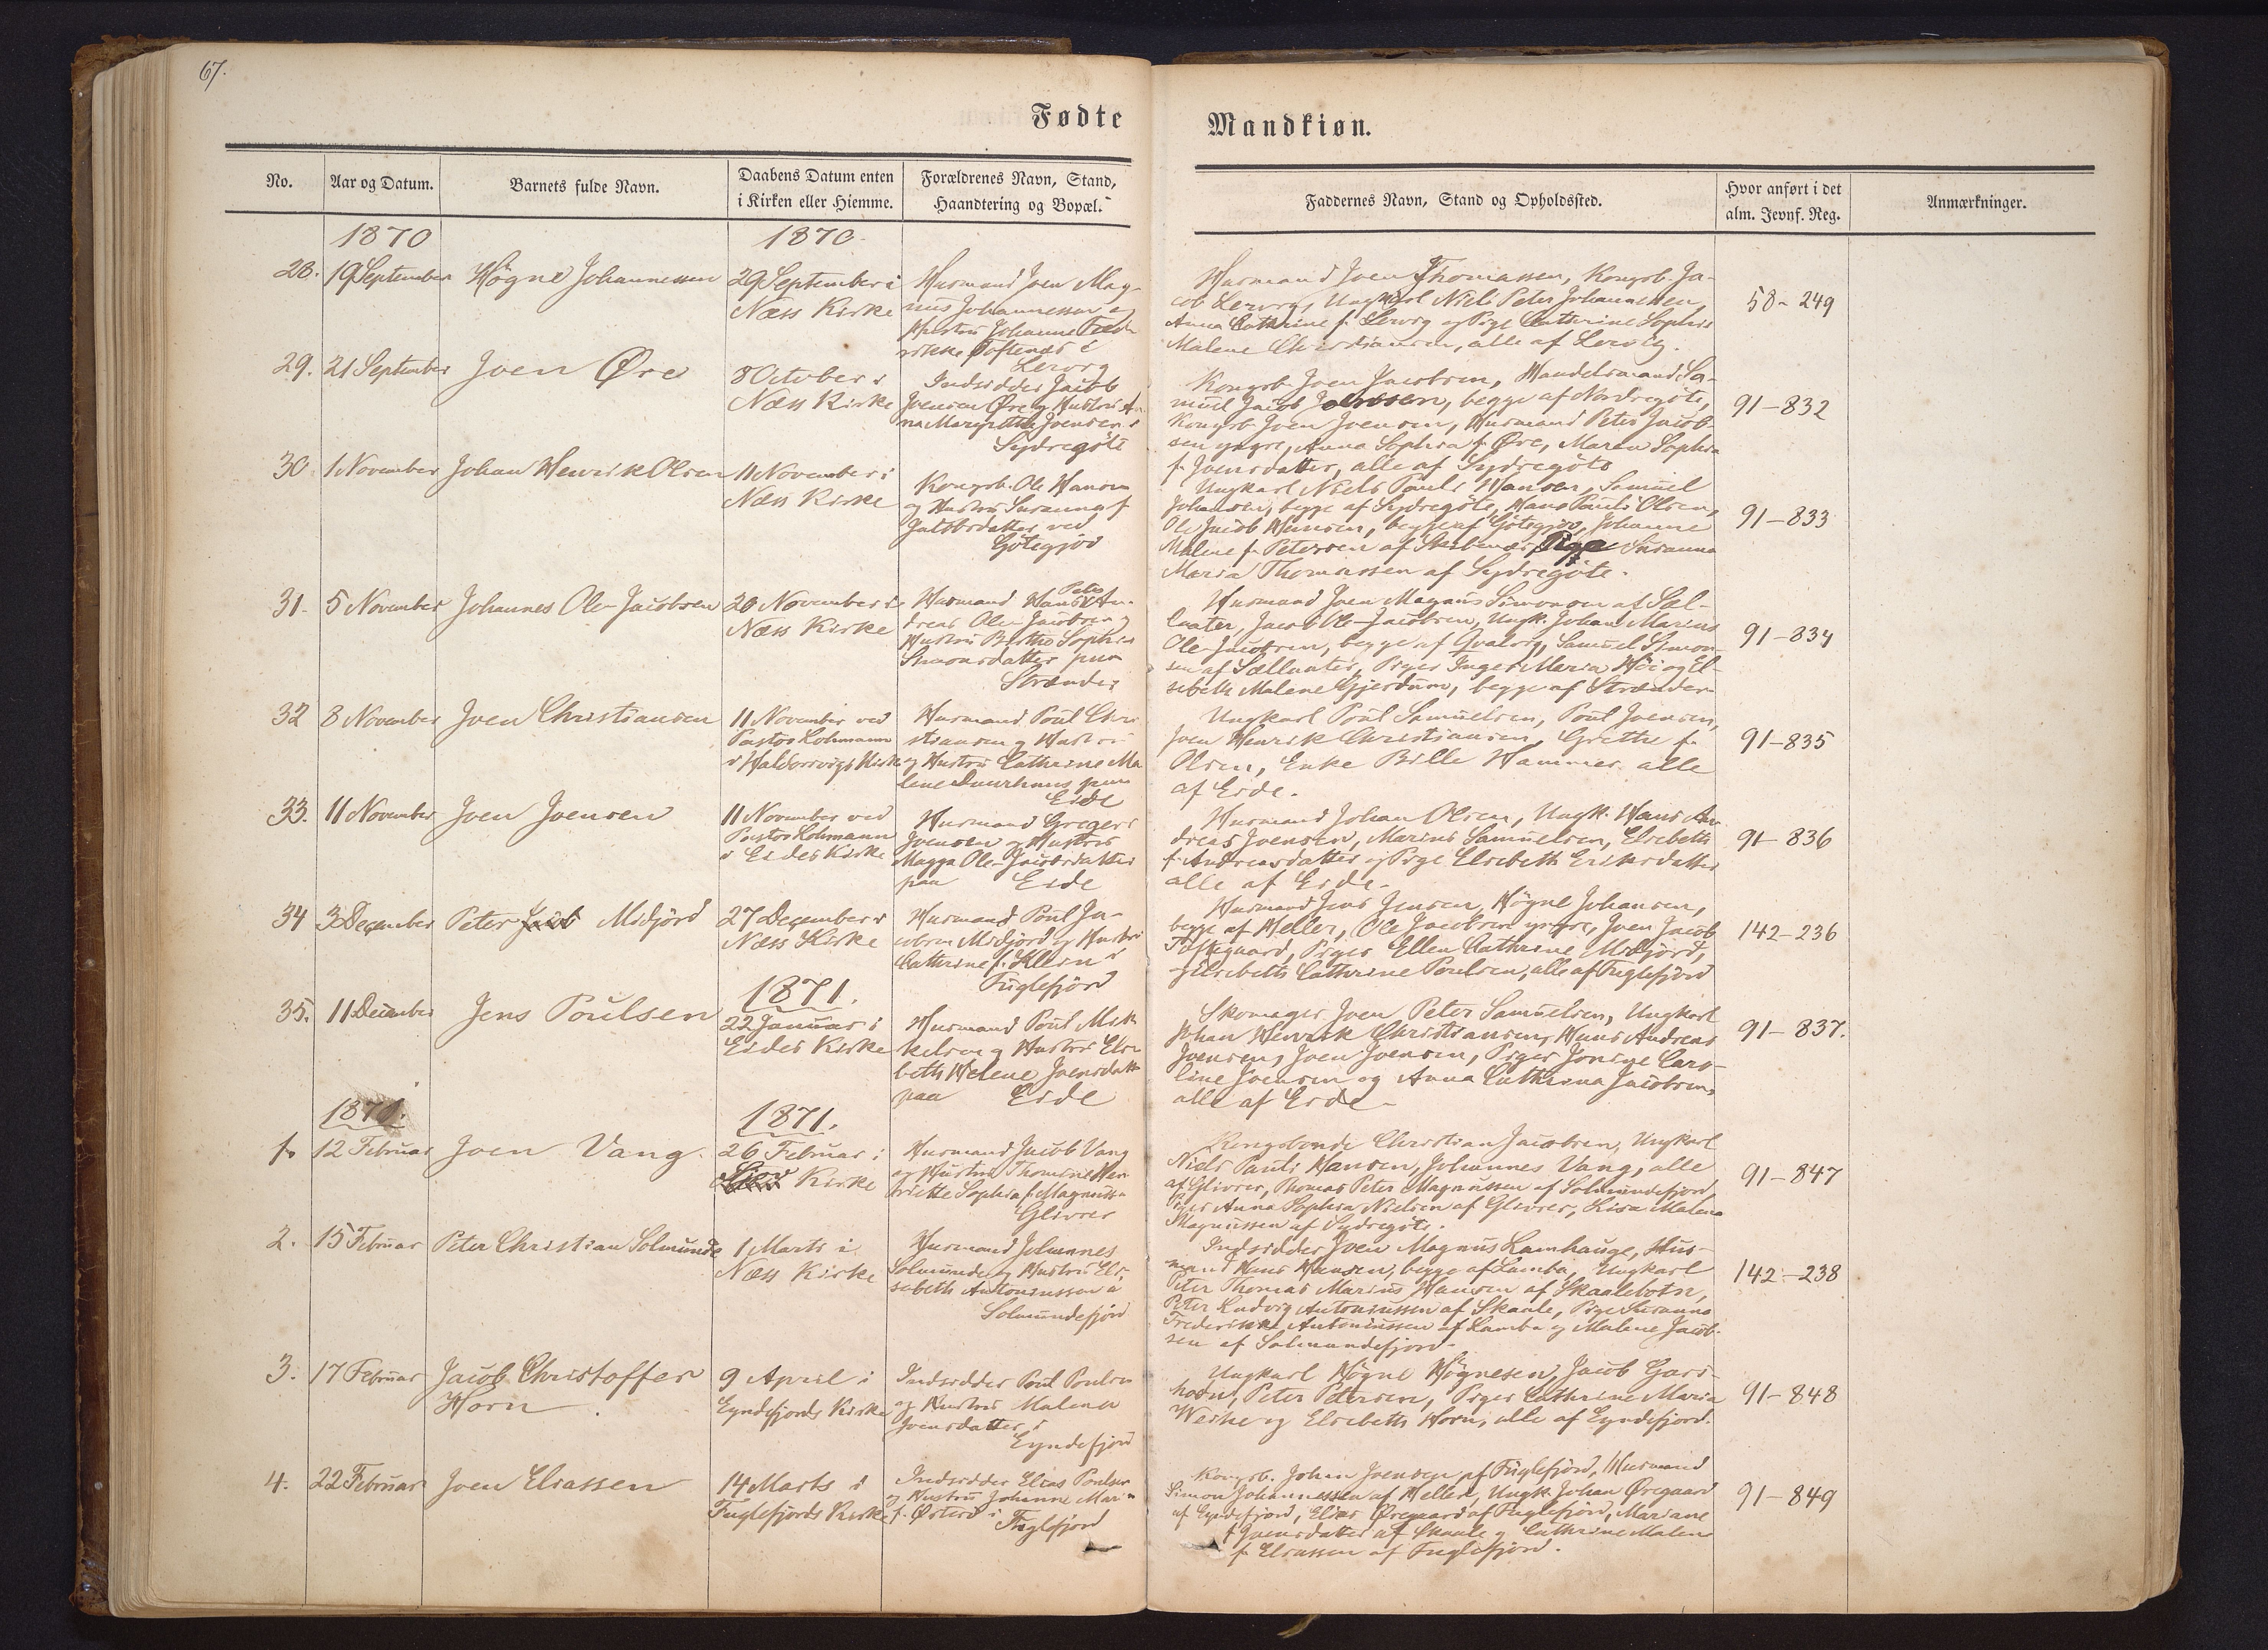 67.
Fødte
Mandkiøn.
No.
Aar og Datum.
Barnets fulde Navn.
Daabens Datum enten
i Kirken eller Hiemme.
Forældrenes Navn, Stand,
Haandtering og Bopæl.
Faddernes Navn, Stand og Opholdssted.
Hvor anført i det
alm. Jevnf. Reg.
Anmærkninger.
1870
1870.
28.
19 September
Høgne Johannessen
29 September i
Næss Kirke
Husmand Joen Mag-
nus Johannessen og
Hustru Johanne Fred-
rikke Toftenæs i
Lervig
Husmand Joen Thomassen, Kongsb. Ja-
cob Lervig, Ungkarl Niels Peter Johannessen,
Anna Cathrine f. Lervig og Pige Cathrine Sophie
Malene Christiansen, alle af Lervig.
58-249
29.
21 September
Joen Øre
8 October i
Næss Kirke
Indsidder Jacob
Joensen Øre og Hustru An-
na Margrethe Joensen i
Sydregöte
Kongsb. Joen Jacobsen, Handelsmand Sa-
muel Jacob Johnssen, begge af Nordregöte,
Kongsb. Joen Joensen, Husmand Peter Jacob-
sen yngre, Anna Sophia f. Øre, Maren Sophia
f. Joensdatter, alle af Sydregöte
91-832
30.
1 November
Johan Henrik Olsen
11 November i
Næss Kirke
Kongsb. Ole Hansen
og Hustru Susanna f.
Jacobsdatter ved
Götegjov
Ungkarl Niels Pauli Hansen, Samuel
Johansen, begge af Sydregöte, Hans Pauli Olsen,
Ole Jacob Hansen, begge af Götegjov, Johanne
Malene f. Petersen af Skibenæs, Pige Susanna
Maria Thomassen af Sydregöte.
91-833
31.
5 November
Johannes Ole-Jacobsen
20 November i
Næss Kirke
Peter
Husmand Hans An-
dreas Ole-Jacobsen og
Hustru Birtha Sophia
Simonsdatter paa
Strænder
Husmand Joen Magnus Simonsen af Sel-
later, Jacob Ole-Jacobsen, Ungk. Johan Marius
Ole-Jacobsen, begge af Qvalvig, Samuel Simon-
sen af Sællater, Piger Inger Maria Höi og El-
sebeth Malene Gjerdum, begge af Strænder
91-834
32
8 November
Joen Christiansen
11 November ved
Pastor Lohmann
i Haldorsvigs Kirke
Husmand Poul Chri-
stiansen og Hustru
og Hustru Cathrine Ma-
lene Duurhuus paa
Eide
Ungkarl Poul Samuelsen, Poul Joensen,
Joen Henrik Christiansen, Grethe f.
Olsen, Enke Bille Hammer alle
af Eide.
91-835
33.
11 November
Joen Joensen
11 November ved
Pastor Lohmann
i Eides Kirke
Husmand Gregers
Joensen og Hustru
Magga Ole-Jacobsdatter
paa Eide
Husmand Johan Olsen, Ungk. Hans An-
dreas Joensen, Marius Samuelsen, Elsebeth
f. Andreasdatter og Pige Elsebeth Eriksdatter
alle af Eide.
91-836
34
3 December
Peter Jacob Midjord
27 December i
Næss Kirke
Husmand Poul Ja-
cobsen Midjord og Hustru
Cathrine f. Klein i
Fuglefjord
Husmand Jens Jensen, Høgne Johansen,
begge af Heller, Ole Jacobsen yngre, Joen Jacob
Toftegaard, Piger Ellen Cathrine Midjord,
og Elsebeth Cathrine Poulsen, alle af Fuglefjord
142-236
1871.
35.
11 December
Jens Poulsen
22 Januar i
Eides Kirke
Husmand Poul Mik-
kelsen og Hustru Else-
beth Helene Joensdatt.
paa Eide
Skomager Joen Peter Samuelsen, Ungkarl
Johan Henrik Christiansen, Hans Andreas
Joensen, Joen Joensen, Piger Jonine Caro-
line Joensen og Anna Cathrina Jacobsen,
alle af Eide
91-837.
1871.
1871.
1.
12 Februar
Joen Vang.
26 Februar i
Kirke
Husmand Jacob Vang
og Hustru Thomine Hen-
riette Sophia f. Magnussen
Glivrer
Kongsbonde Christian Jacobsen, Ungkarl
Niels Pauli Hansen, Johannes Vang, alle
af Glivrer, Thomas Peter Magnussen af Solmundefjord
Piger Anna Sophia Nielsen af Glivrer, Lisa Malena
Magnussen af Sydregöte.
91-847
2.
15 Februar
Peter Christian Solmunde
1 Marts i
Næss Kirke
Husmand Johannes
Solmunde og Hustru Els-
sebeth Antoniussen i
Solmundefjord
Indsidder Joen Magnus Lamhauge, Hus-
mand Hans Hansen, begge af Lamba, Ungkarl
Peter Thomas Marius Hansen af Skaalebotn,
Peter Ludvig Antoniussen af Skaale, Pige Susanna
Frederikke Antoniussen af Lamba og Malene Jacob-
sen af Solmundefjord.
142-238
3.
17 Februar
Jacob Christoffer
Horn
9 April i
Eyndefjords Kirke
Indsidder Poul Poulsen
og Hustru Malena
Joensdatter i
Eyndefjord
Ungkarl Høgne Høgnesen, Jacob Gars-
horn, Peter Petersen, Piger Cathrine Maria
Weihe og Elsebeth Horn, alle af Eyndefjord.
91-848
4.
22 Februar
Joen Eliassen
14 Marts i
Fuglefjords Kirke
Indsidder Elias Poulsen
og Hustru Johanne Maria
f. Østerö i
Fuglefjord
Kongsb. Johan Joensen af Fuglefjord, Husmand
Simon Johannessen af Heller, Ungk. Johan Øregaard
af Eyndefjord, Elias Øregaard af Fuglefjord, Mariane
f. Joensdatter af Skaale og Cathrine Malene
f. Eliassen af Fuglefjord.
91-849